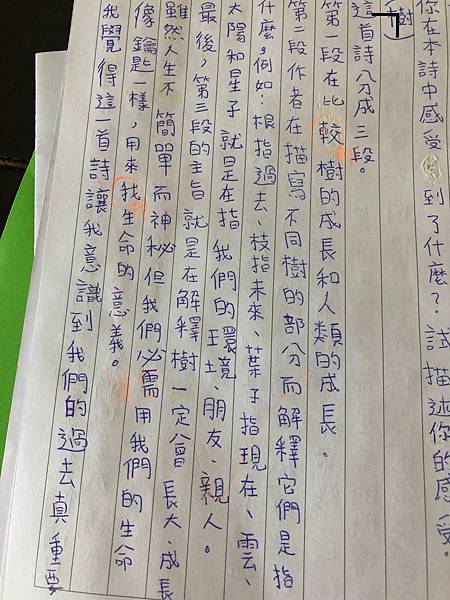 你在本詩中感受到了什麼？試描述你的感受。
樹
這首詩分成三段。
第一段在比較樹的成長和人類的成長。
第二段作者在描寫不同樹的部分而解釋它們是指
什麼。例如：根指過去、枝指未來、葉子指現在、雲、
太陽和星子就是在指我們的環境、朋友、親人。
最後，第三段的主旨就是在解釋樹一定會長大、成長
雖然人生不簡單而神秘但我們必需用我們的生命
像鑰匙一樣，用來找生命的意義。
我覺得這一首詩讓我意識到我們的過去真重要